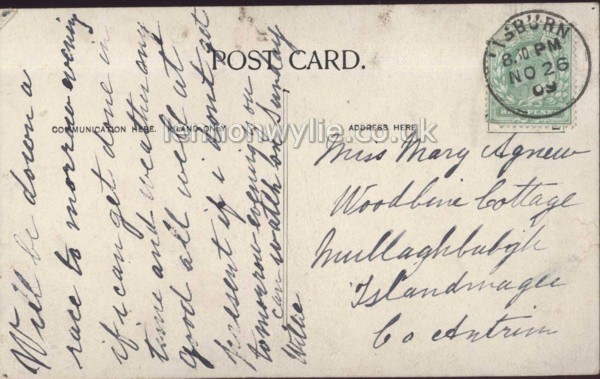 POST CARD.
COMMUNICATION HERE. INLAND ONLY
ADDRESS HERE
lennonwylie.co.uk
LISBURN
8.10 PM
NO 26
09
Will be down a
race to morrow evening
if i can get done in
time and weather any
good all well at
present if i don't get
tomorrow evening you
can watch on Sunday
Willie
Miss Mary Agnew
Woodbine Cottage
Mullaghbuoy
Islandmagee
Co Antrim